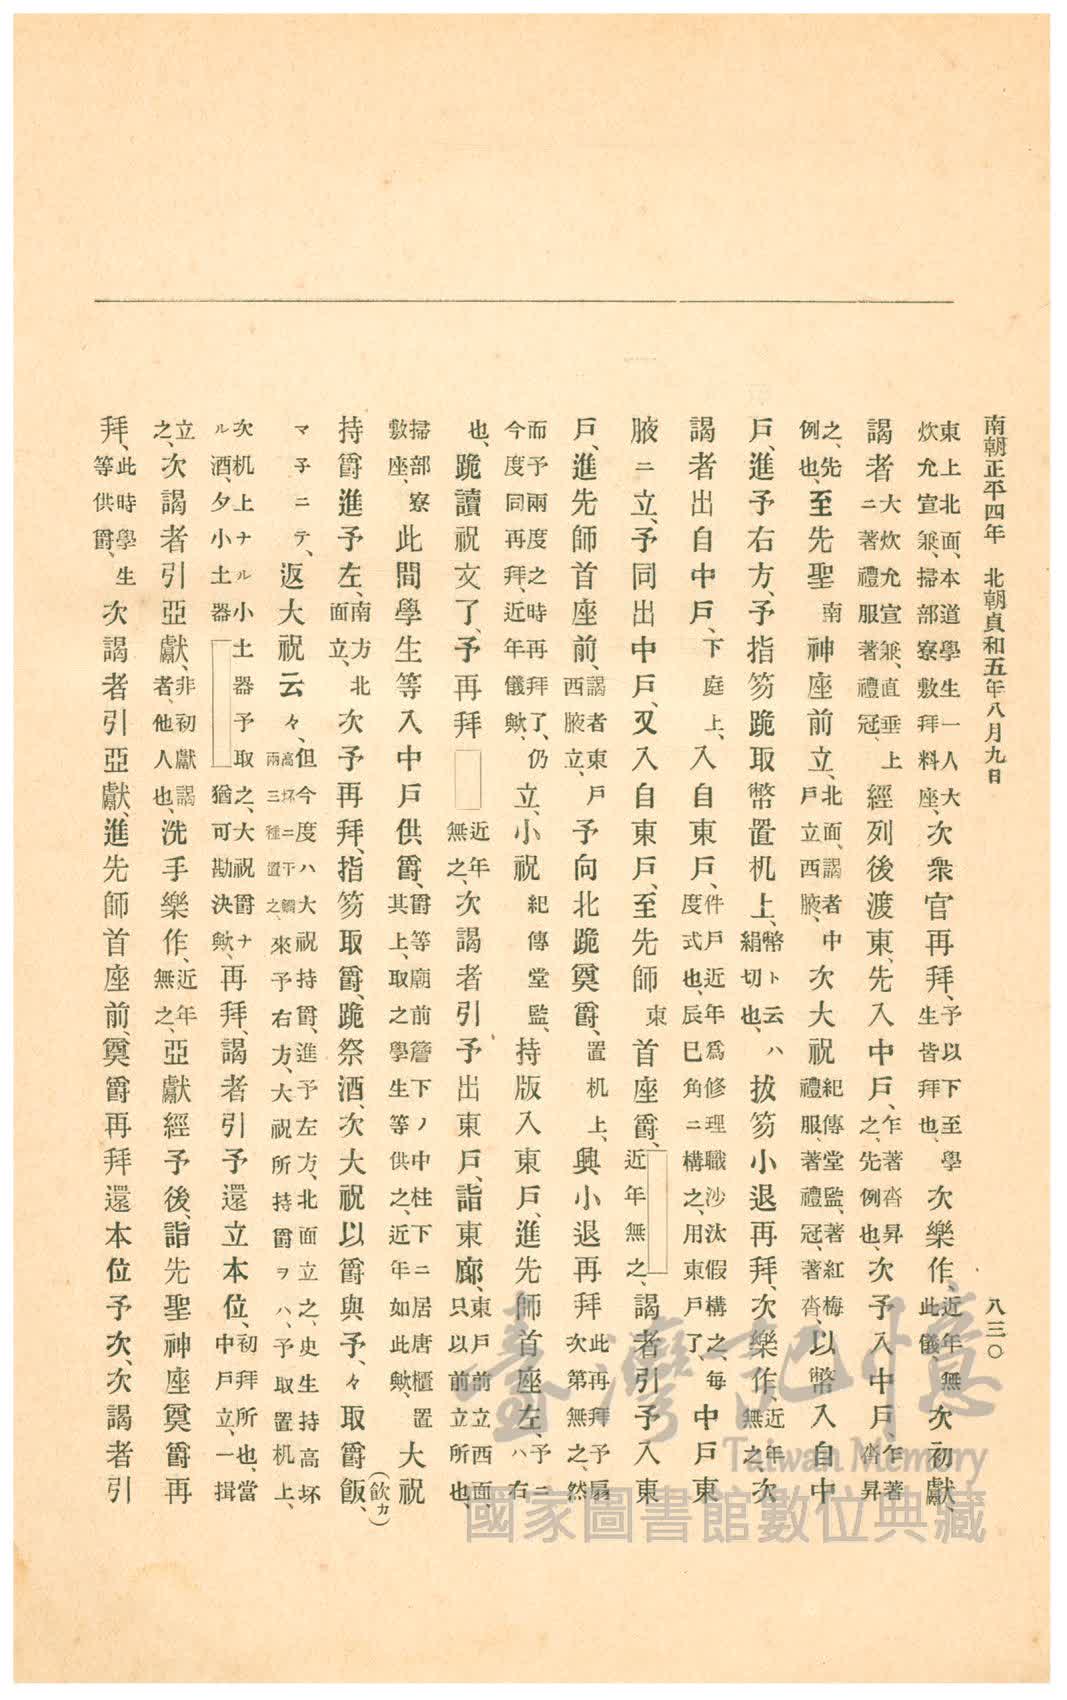 南朝正平四年　北朝貞和五年八月九日
八三〇
東上北面、本道學生一人大炊允宣兼、掃部寮敷拜料座、次衆官再拜、予以下至學生皆拜也、次樂作、近年無此儀、次初獻、
謁者大炊允宣兼、直垂上ニ著禮服著禮冠、經列後渡東、先入中戶、乍著沓昇之、先例也、次予入中戶、乍著沓昇
之、先例也、至先聖南神座前立、北面、謁者中戶立西腋、次大祝紀傳堂監、著紅梅禮服、著禮冠、著沓、以幣入自中
戶、進予右方、予指笏跪取幣置机上、幣ト云ハ絹切也、拔笏小退再拜、次樂作、近年無之、次
謁者出自中戶、下庭上、入自東戶、件戶近年爲修理職沙汰假構之、每度式也、辰巳角ニ構之、用東戶了、中戶東
腋ニ立、予同出中戶、又入自東戶、至先師東首座爵、近年無之、謁者引予入東
戶、進先師首座前、謁者東戶西腋立、予向北跪奠爵、置机上、興小退再拜此再拜予扇次第無之、然
而予兩度之時再拜了、仍今度同再拜、近年儀歟、立、小祝紀傳堂監、持版入東戶、進先師首座左、予ニハ右
也、跪讀祝文了、予再拜近年無之、次謁者引予出東戶、詣東廊、東戶前立西面、只以前立所也、
掃部寮敷座、此間學生等入中戶供爵、爵等廟前簷下ノ中柱下ニ居唐櫃置其上、取之學生等供之、近年如此歟、大祝
持爵進予左、南方北面立、次予再拜、指笏取爵、跪祭酒、次大祝以爵與予、々取爵飯、(飮カ)
マ子ニテ、返大祝云々、但今度ハ大祝持爵、進予左方、北面立之、史生持高坏高坏ニ干鯛兩三種置之、來予右方、大祝所持爵ヲハ、予取置机上、
次机上ナル小土器予取之、大祝爵ナル酒、夕小土器猶可勘決歟、再拜、謁者引予還立本位、初拜所也、當中戶立、一揖
立之、次謁者引亞獻、非初獻謁者、他人也、洗手樂作、近年無之、亞獻經予後、詣先聖神座奠爵再
拜、此時學生等供爵、次謁者引亞獻、進先師首座前、奠爵再拜還本位予次、次謁者引
臺灣記憶
Taiwan Memory
國家圖書館數位典藏